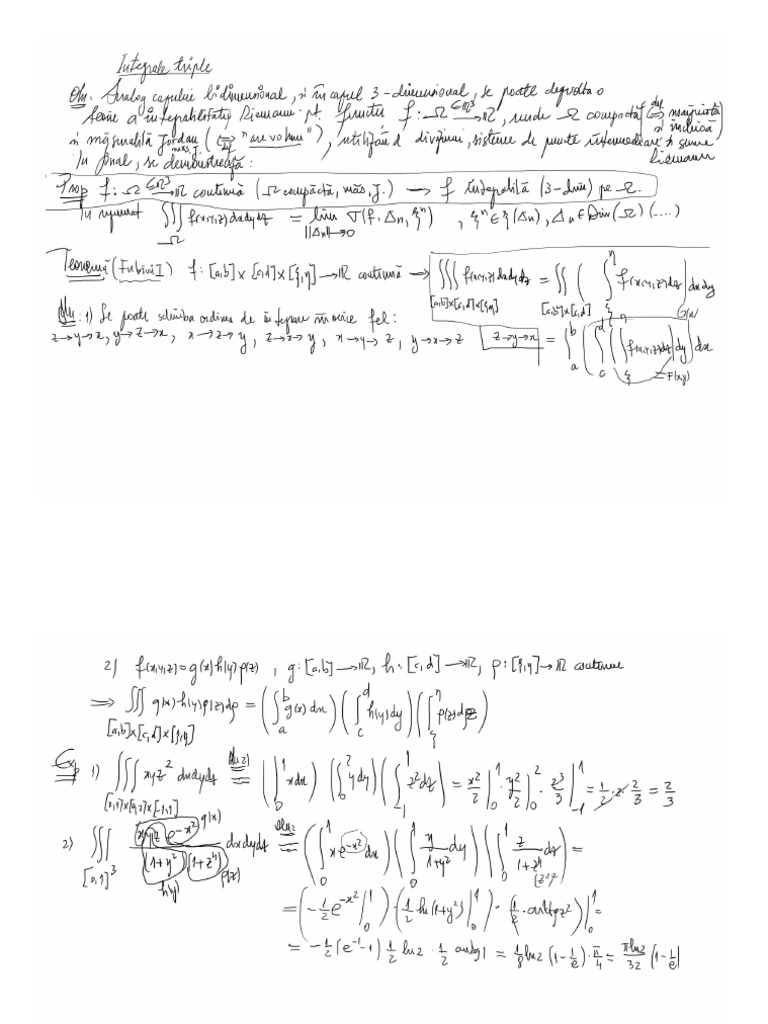 Integrale triple
Obs. Analog cazului bidimensional, și în cazul 3-dimensional, se poate dezvolta o
teorie a integrabilității Riemann pt. funcții f: Ω ⊆ ℝ³ → ℝ, unde Ω compactă (⇔ mărginită și închisă)
și măsurabilă Jordan (⇔ "are volum"), utilizând diviziuni, sisteme de puncte intermediare și sume Riemann
În final, se demonstrează:
Prop f: Ω ⊆ ℝ³ → ℝ continuă (Ω compactă, măs. J.) → f integrabilă (3-dim) pe Ω.
∭_Ω f(x,y,z)dxdydz = lim_{||Δn||→0} σ(f, Δn, ξⁿ), ξⁿ ∈ ξ(Δn), Δn ∈ Div(Ω) (....)
Teoremă (Fubini I) f: [a,b]×[c,d]×[ξ,η] → ℝ continuă → ∭_{[a,b]×[c,d]×[ξ,η]} f(x,y,z)dxdydz = ∬_{[a,b]×[c,d]} (∫_ξ^η f(x,y,z)dz) dxdy
: 1) Se poate schimba ordinea de integrare în orice fel:
z→y→x, y→z→x, x→z→y, z→x→y, x→y→z, y→x→z z→y→x = ∫_a^b (∫_c^d (∫_ξ^η f(x,y,z)dz) dy) dx
= F(x,y)
2) f(x,y,z) = g(x)h(y)p(z), g: [a,b] → ℝ, h: [c,d] → ℝ, p: [ξ,η] → ℝ continue
⇒ ∭_{[a,b]×[c,d]×[ξ,η]} g(x)·h(y)p(z) = (∫_a^b g(x)dx)(∫_c^d h(y)dy)(∫_ξ^η p(z)dz)
Exp 1) ∭_{[0,1]×[0,2]×[-1,1]} xyz² dxdydz = (∫_0^1 xdx)(∫_0^2 ydy)(∫_{-1}^1 z²dz) = x²/2 |_0^1 · y²/2 |_0^2 · z³/3 |_{-1}^1 = 1/2 · 2 · 2/3 = 2/3
2) ∭_{[0,1]³} xyz e^{-x²} / (1+y²)(1+z⁴) dxdydz = (∫_0^1 xe^{-x²}dx)(∫_0^1 y/(1+y²) dy)(∫_0^1 z/(1+z⁴) dz) =
g(x) h(y) p(z) (z²)²
= (-1/2 e^{-x²} |_0^1) · (1/2 ln(1+y²) |_0^1) · (1/2 · arctg z²) |_0^1 =
= -1/2 (e⁻¹-1) 1/2 ln2 · 1/2 arctg1 = 1/8 ln2 (1-1/e) · π/4 = πln2/32 (1-1/e)